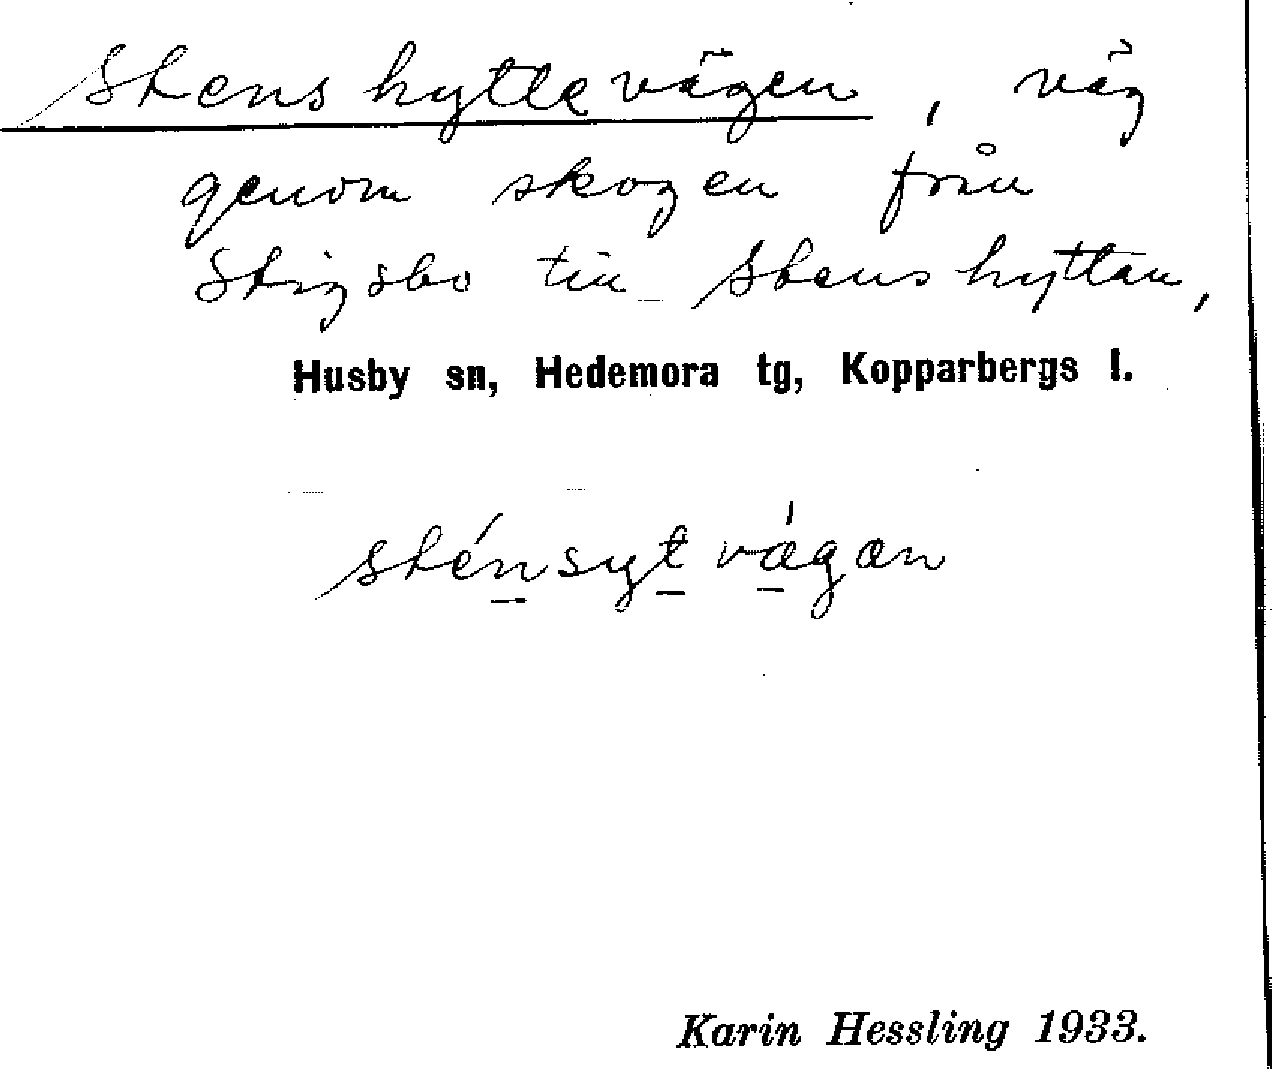 Stenshyttevägen, väg
genom skogen från
Stigsbo till Stenshyttan,
Husby sn, Hedemora tg, Kopparbergs l.
sténsyt vǽgæn
Karin Hessling 1933.